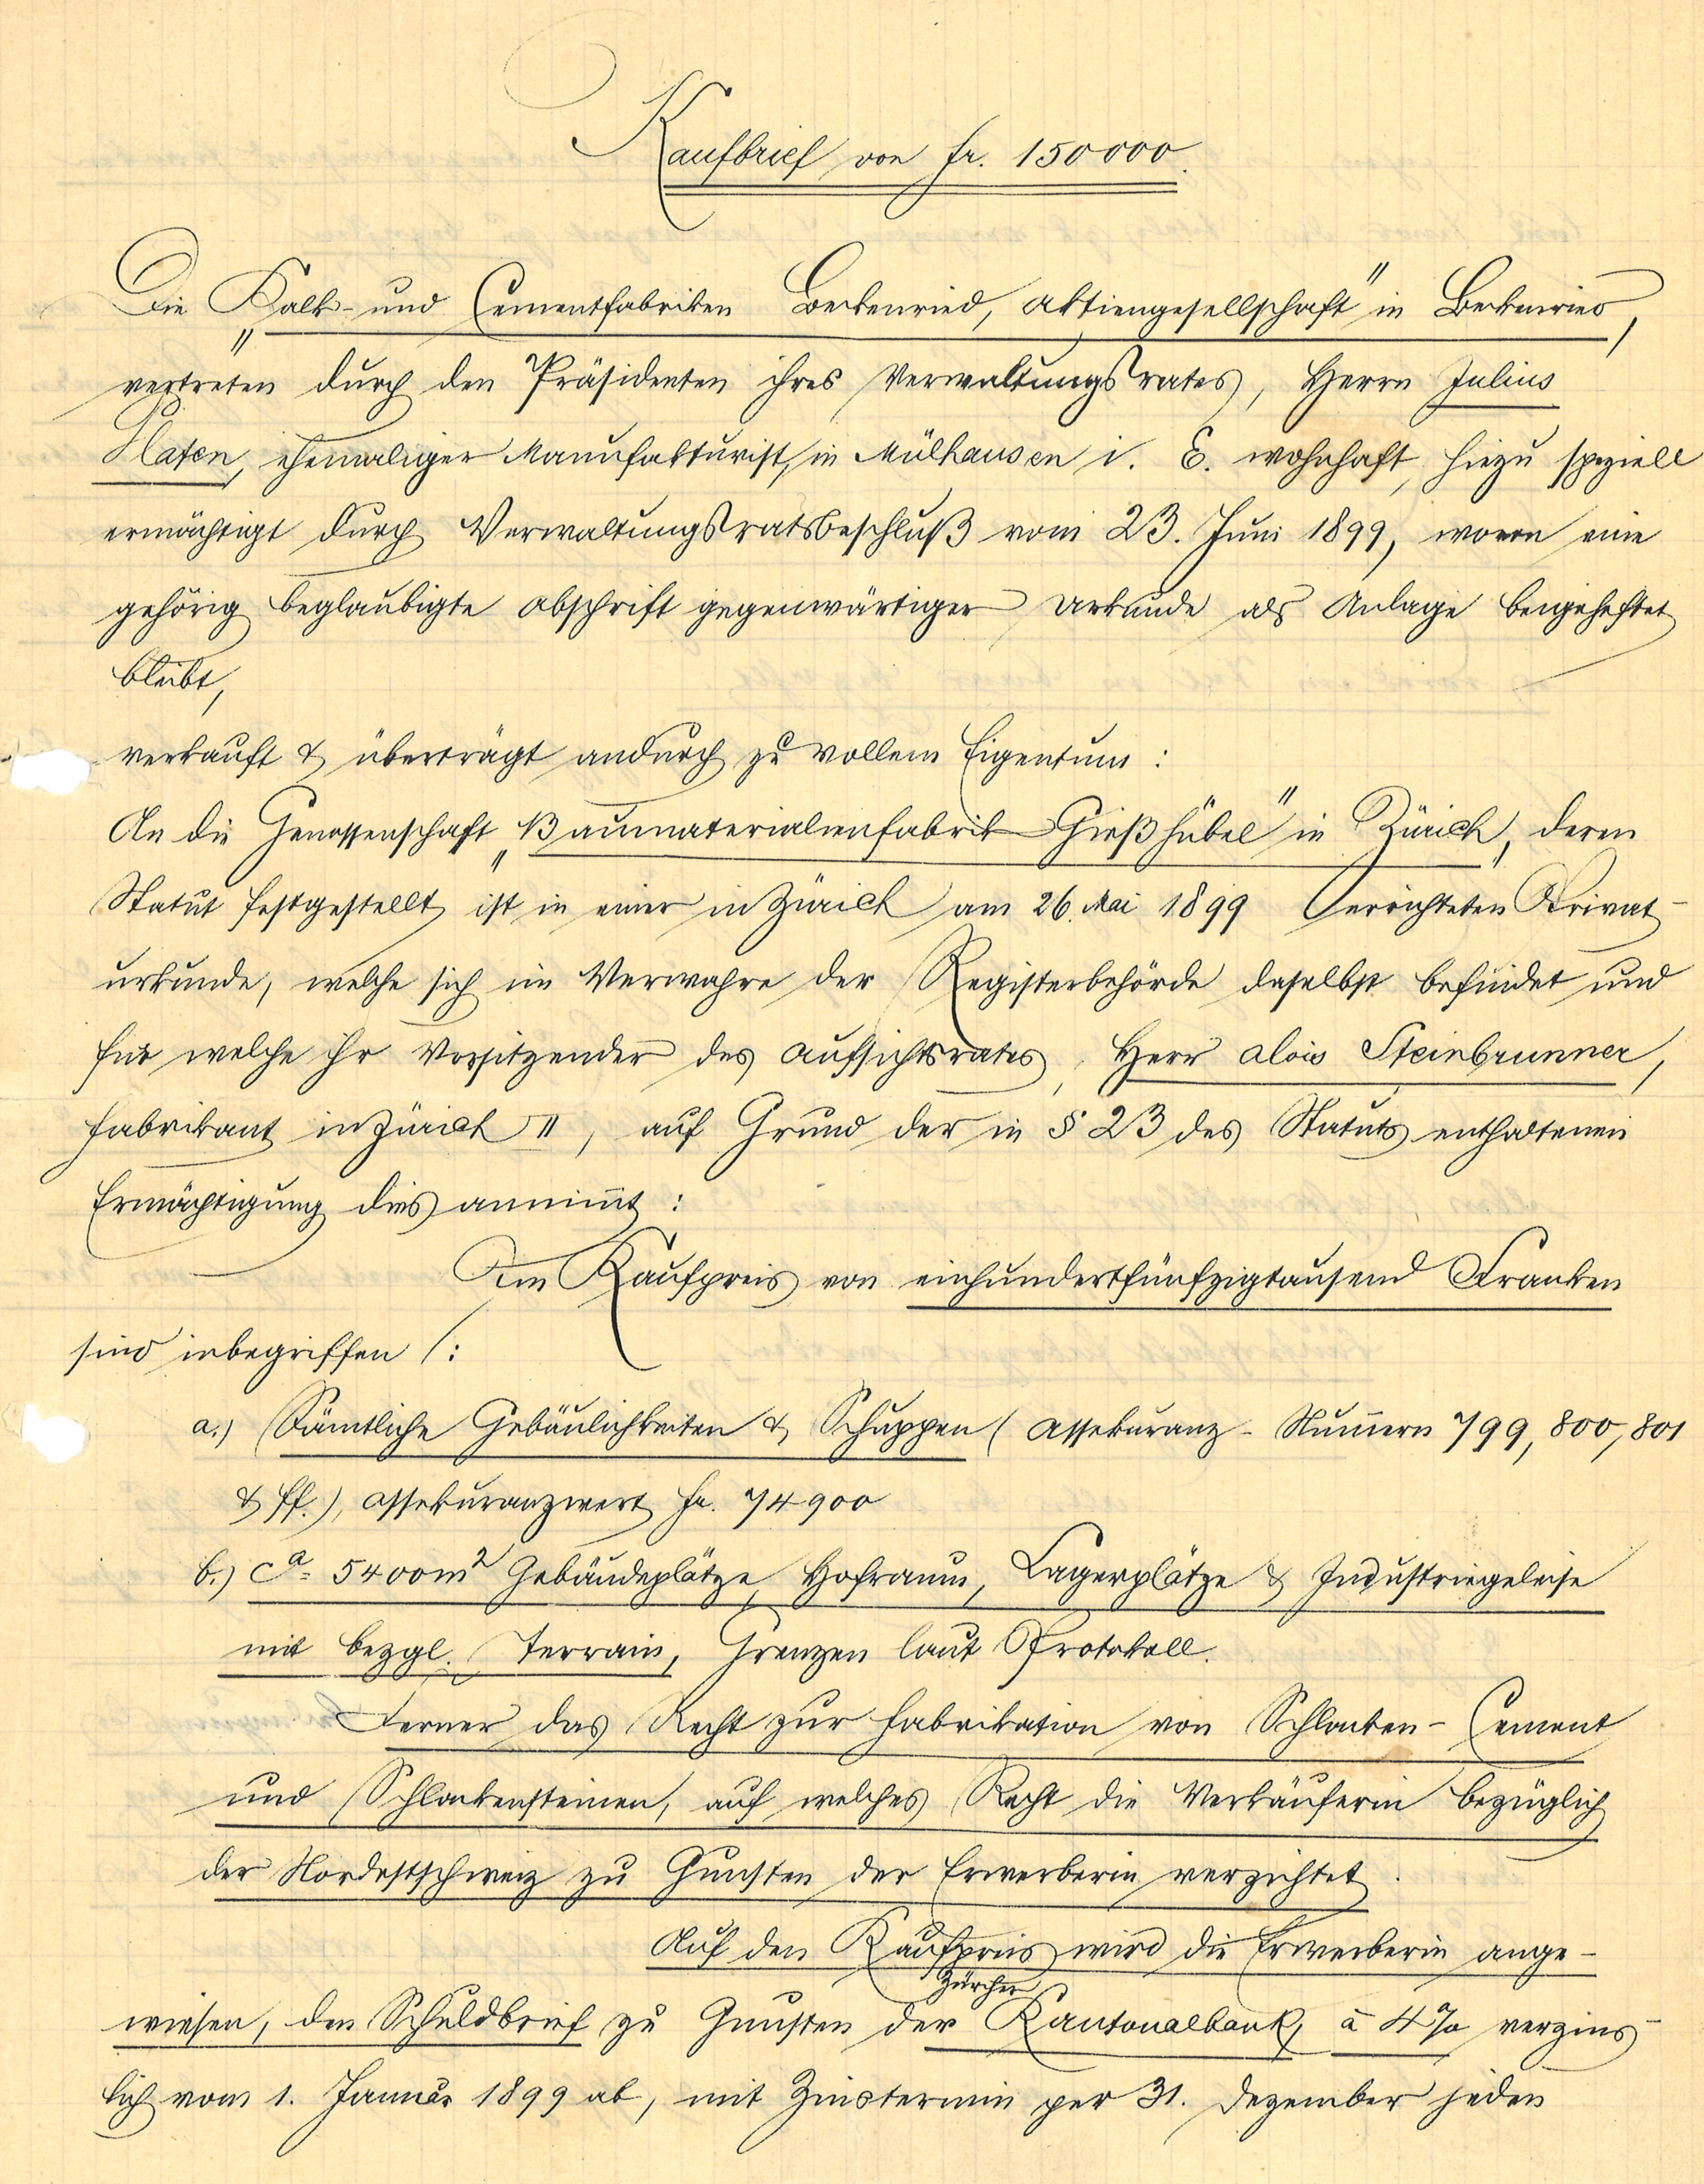 Kaufbrief von fr. 150000.
Die „Kalk- und Cementfabriken Beckenried, Aktiengesellschaft" in Beckenried,
vertreten durch den Präsidenten ihres Verwaltungsrates, Herrn Julius
Platen, ehemaliger Manufakturist, in Mülhausen i. E. wohnhaft, hiezu speziell
ermächtigt durch Verwaltungsratsbeschluß vom 23. Juni 1899, wovon eine
gehörig beglaubigte Abschrift gegenwärtiger Urkunde als Anlage beigeheftet
bleibt,
verkauft & überträgt andurch zu vollem Eigentum:
An die Genossenschaft „Baumaterialienfabrik Gießhübel" in Zürich, deren
Statut festgestellt ist in einer in Zürich am 26. Mai 1899 errichteten Privat-
urkunde, welche sich im Verwahre der Registerbehörde daselbst befindet und
für welche ihr Vorsitzender des Aufsichtsrates, Herr Alois Steinbrunner,
Fabrikant in Zürich II, auf Grund der in § 23 des Statuts enthaltenen
Ermächtigung dies annim̅t:
Im Kaufpreis von einhundertfünfzigtausend Franken
sind inbegriffen:
a.) Sämtliche Gebäulichkeiten & Schuppen (Assekuranz-Num̅ern 799, 800, 801
& ff.), Assekuranzwert fr. 74900
b.) ca. 5400 m² Gebäudeplätze, Hofraum, Lagerplätze & Industriegeleise
mit bezgl. Terrain, Grenzen laut Protokoll.
Ferner das Recht zur Fabrikation von Schlacken-Cement
und Schlackensteinen, auf welches Recht die Verkäuferin bezüglich
der Nordostschweiz zu Gunsten der Erwerberin verzichtet.
Auf den Kaufpreis wird die Erwerberin ange-
wiesen, den Schuldbrief zu Gunsten der Zürcher Kantonalbank, à 4% verzins-
lich vom 1. Januar 1899 ab, mit Zinstermin per 31. Dezember jeden